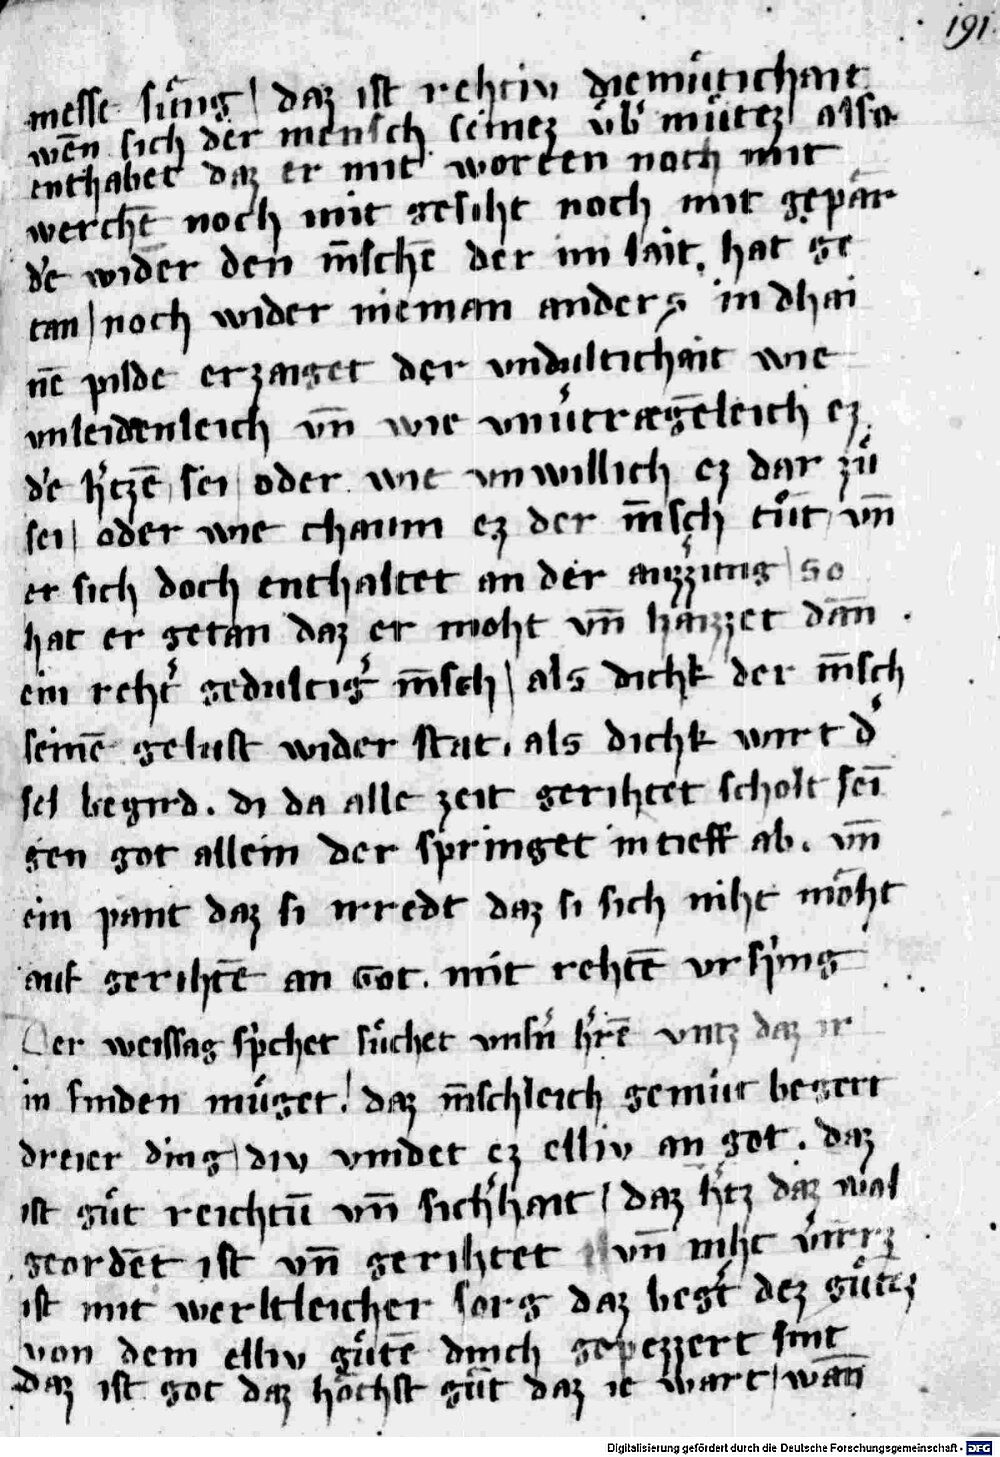 191
messe sůng / daz ist rehtiv diemůtichait
wēn sich der mensch seinez vb̕ můtez / also
enthabet daz er mit worten noch mit
werchē noch mit gesiht noch mit gepär
d̕e wider den m̄schē der im lait hat ge
tan / noch wider nieman anders in dhai
nē pilde erzaiget der vndultichait wie
vnleidenleich vn̄ wie vnu̕trægēleich ez
d̕e h̕tzē sei / oder wie vnwillich ez dar zů
sei / oder wie chaum ez der m̄sch tůt / vn̄
er sich doch enthaltet an der auzz̕ung / so
hat er getan daz er moht vn̄ haizzet dann
ein reht̕ gedultig̕ m̄sch / als dichk der m̄sch
seinē gelust wider stat . als dichk wirt d̕
sel begird . di da alle zeit gerihtet scholt sei
gen got allein der springet in tieff ab . vn̄
ein pant daz si irredt daz si sich niht möht
auf gerihtē an Got . mit rehtē vrsp̕ing
Der weissag sp̕chet sůchet vnsn̕ h̕rē vntz daz ir
in finden můget / daz m̄schleich gemůt begert
dreier ding / div vindet ez elliv an got . daz
ist gůt reichtū vn̄ sich̕hait / daz h̕tz daz wol
geordēt ist vn̄ gerihtet vn̄ niht v̕irrz
ist mit werltleicher sorg daz begt̕ dez gůtez
von dem elliv gůtē dinch gepezzert sint
daz ist got daz höchst gůt daz ie wart / wan̄
Digitalisierung gefördert durch die Deutsche Forschungsgemeinschaft - DFG